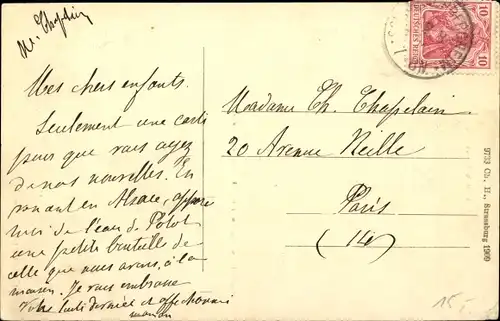 Mes chers enfants.
Seulement une carte
pour que vous ayez
de nos nouvelles. En
venant en Alsace,
de l'eau de
une petite bouteille de
celle que nous avons, à la
maison. Je vous embrasse
Votre et affectionnée
maman
Madame Th. Chapelain
20 Avenue Reille
Paris
(14)
10 10
DEUTSCHES REICH
9733 Ch. H., Strassburg 1909
15,-